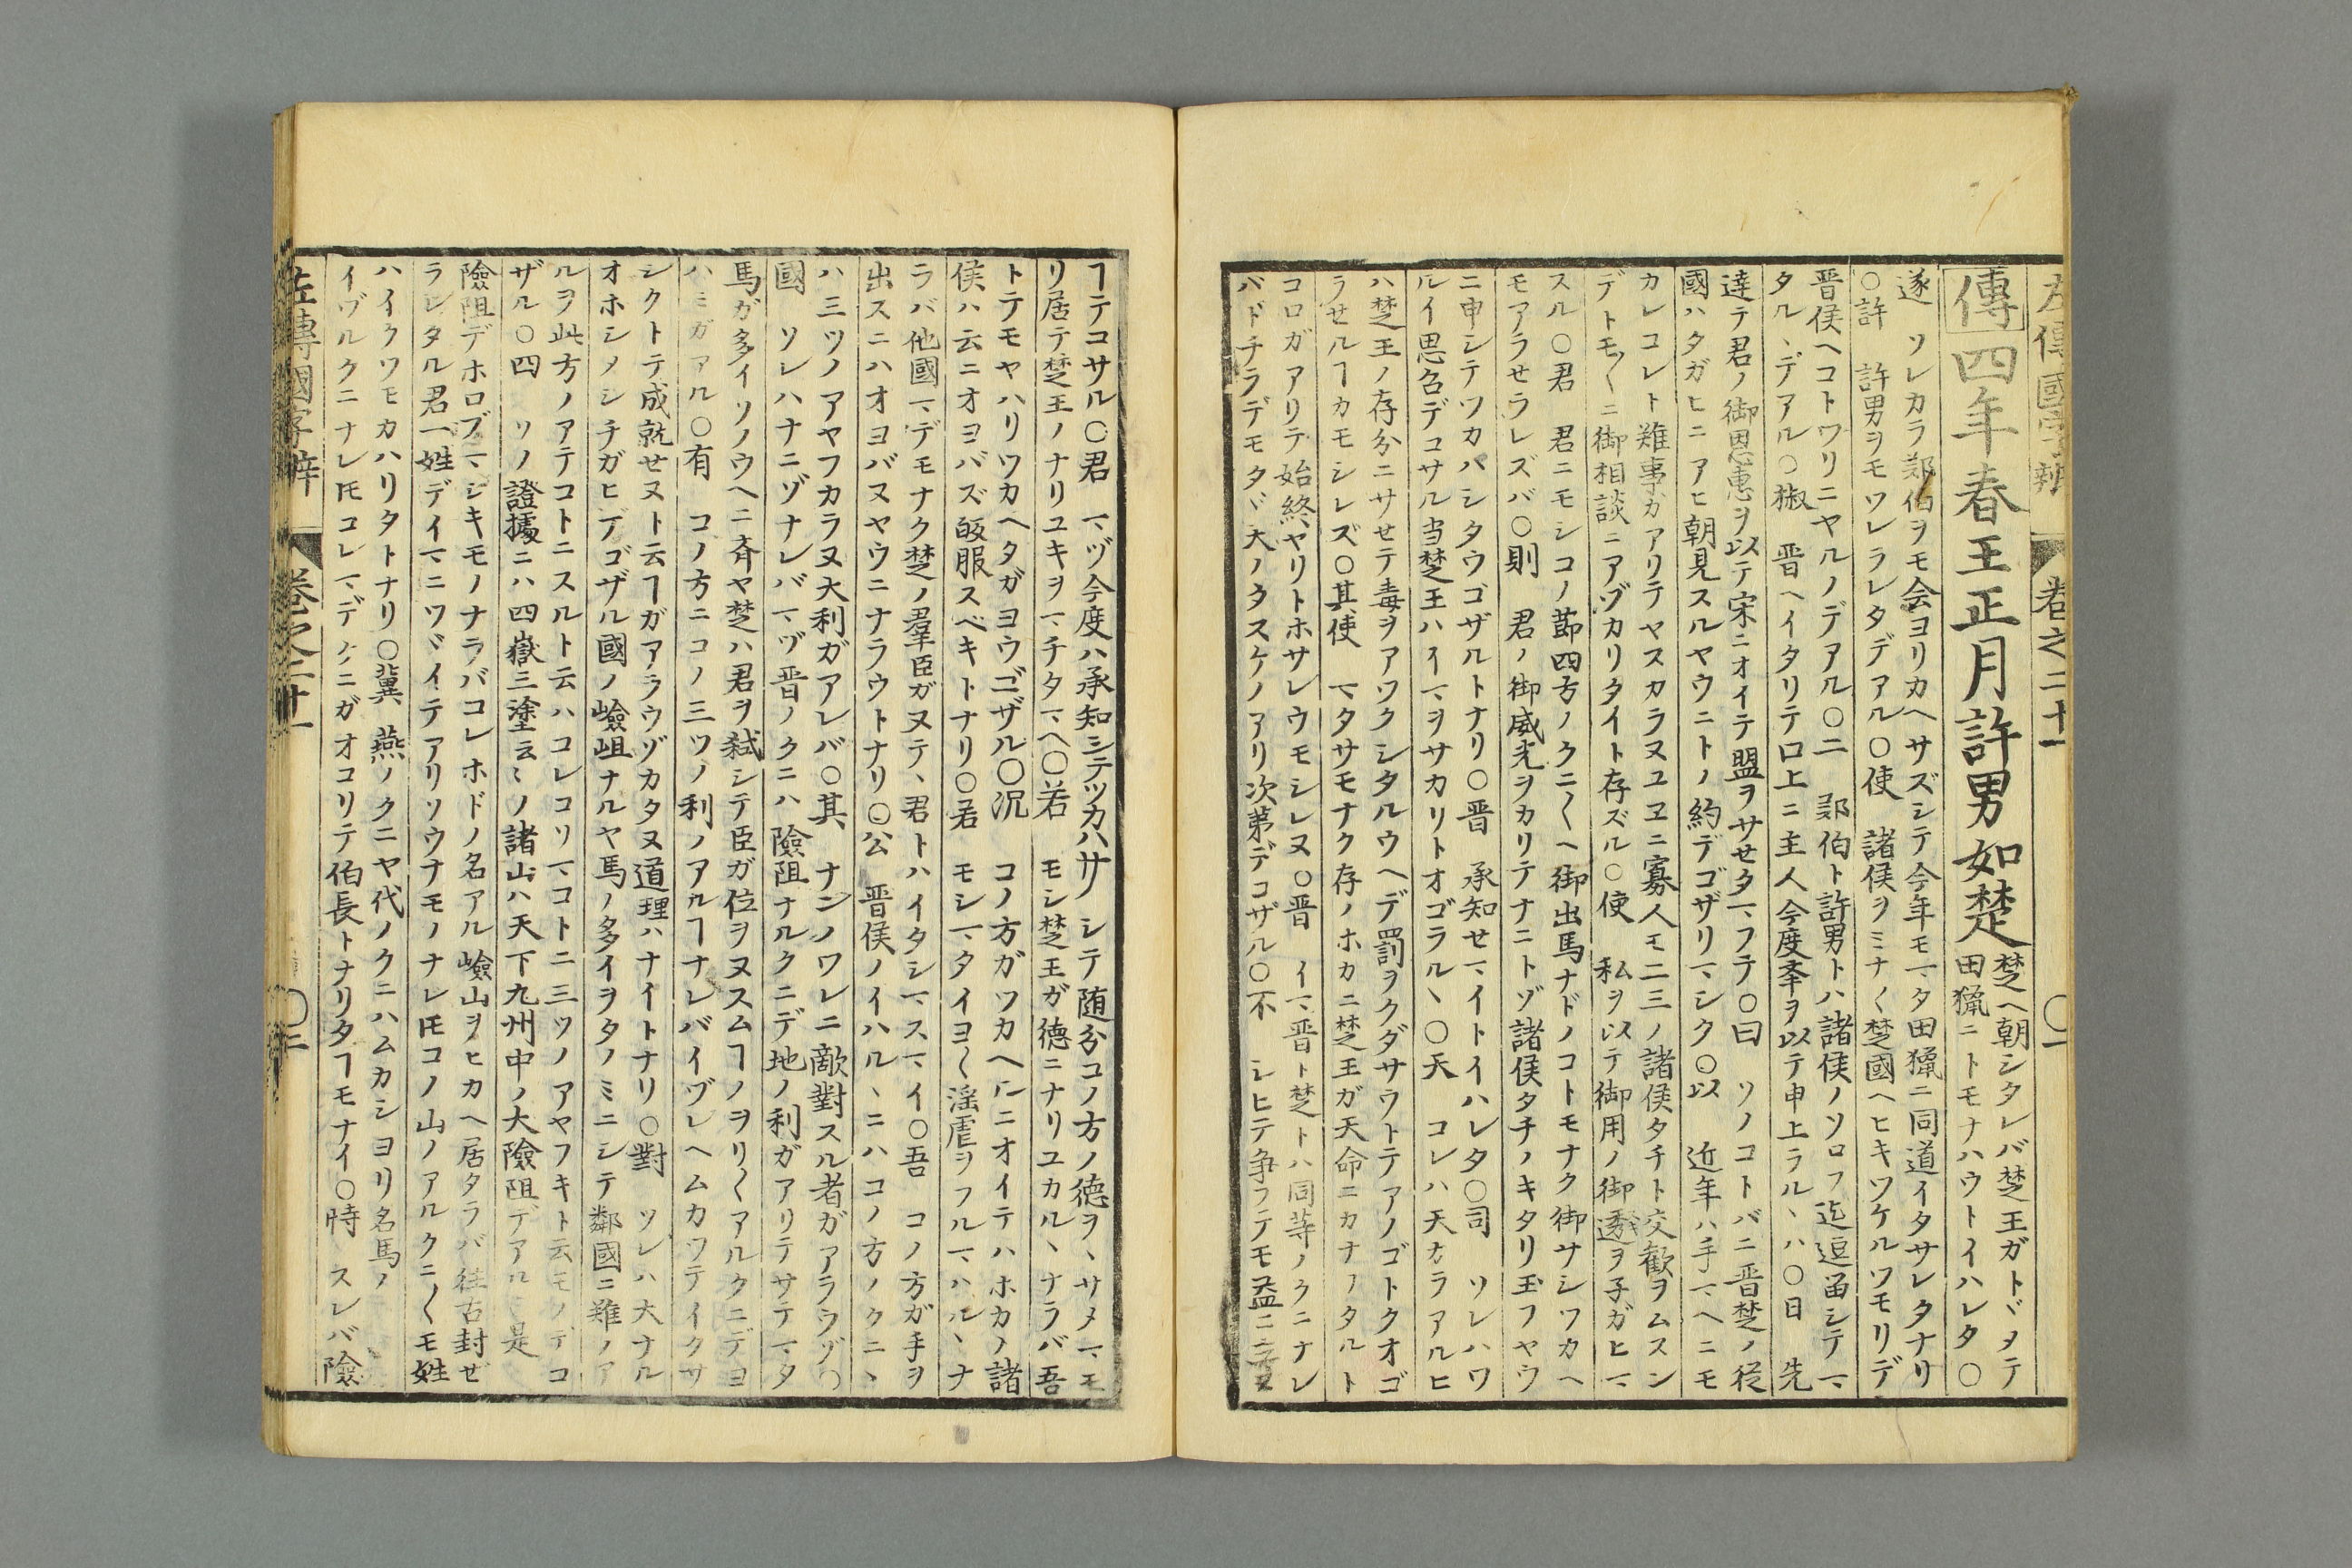 左傳國字辨 卷之二十一 〇一
傳四年春王正月許男如楚 楚ヘ朝シタレバ楚王ガトヾヲテ
田獵ニトモナハウトイハレタ〇
遂 ソレカラ鄭伯ヲモ会ヨリカヘサズシテ今年モマタ田獵ニ同道イタサレタナリ
〇許 許男ヲモツレラレタデアル〇使 諸侯ヲミナ〱楚國ヘヒキツケルツモリデ
晋侯ヘコトワリニヤルノデアル〇二 鄭伯ト許男トハ諸侯ノソロフ迄逗畄シテマ
タルヽデアル〇椒 晋ヘイタリテ口上ニ主人今度拳ヲ以テ申上ラルヽハ〇日 先
達テ君ノ御恩惠ヲ以テ宋ニオイテ盟ヲサセタマフテ〇曰 ソノコトバニ晋楚ノ從
國ハタガヒニアヒ朝見スルヤウニトノ約デゴザリマシク〇以 近年ハ手マヘニモ
カレコレト難事カアリテヤスカラヌユヱニ寡人モ二三ノ諸侯タチト交歓ヲムスン
デトモ〱ニ御相談ニアヅカリタイト存ズル〇使 私ヲ以テ御用ノ御透ヲ子ガヒマ
スル〇君 君ニモシコノ莭四方ノクニ〱ヘ御出馬ナドノコトモナク御サシツカヘ
モアラセラレズバ〇則 君ノ御威光ヲカリテナニトゾ諸侯タチノキタリ玉フヤウ
ニ申シテツカバシタウゴザルトナリ〇晋 承知セマイトイハレタ〇司 ソレハワ
ルイ思召デコサル当楚王ハイマヲサカリトオゴラルヽ〇天 コレハ天カラアルヒ
ハ楚王ノ存分ニサセテ毒ヲアツクシタルウヘデ罰ヲクダサウトテアノゴトクオゴ
ラセルヿカモシレズ〇其使 マタサモナク存ノホカニ楚王ガ天命ニカナフタルト
コロガアリテ始終ヤリトホサレウモシレヌ〇晋 イマ晋ト楚トハ同等ノクニナレ
バドチラデモタヾ天ノタスケノアリ次第デコザル〇不 シヒテ争フテモ益ニ立ヌ
ヿテコサル〇君 マヅ今度ハ承知シテツカハサノシテ随分コノ方ノ徳ヲヽサメマモ
リ居テ楚王ノナリユキヲマチタマヘ〇若 モシ楚王ガ徳ニナリユカルヽナラバ吾
トテモヤハリツカヘタガヨウゴザル〇况 コノ方ガツカヘルニオイテハホカノ諸
侯ハ云ニオヨバズ皈服スベキトナリ〇若 モシマタイヨ〱淫虐ヲフルマハルヽナ
ラバ他國マデモナク楚ノ羣臣ガヌテヽ君トハイタシマスマイ〇吾 コノ方ガ手ヲ
出スニハオヨバヌヤウニナラウトナリ〇公 晋侯ノイハルヽニハコノ方ノクニヽ
ハ三ツノアヤフカラヌ大利ガアレバ〇其 ナンノワレニ敵對スル者ガアラウゾ〇
國 ソレハナニゾナレバマヅ晋ノクニハ險阻ナルクニデ地ノ利ガアリテサテマタ
馬ガ多イソノウヘニ斉ヤ楚ハ君ヲ弑シテ臣ガ位ヲヌスムヿノヲリ〱アルクニデヨ
ハミガアル〇有 コノ方ニコノ三ツノ利ノアルヿナレバイヅレヘムカツテイクサ
シクトテ成就セヌト云ヿガアラウゾカタヌ道理ハナイトナリ〇對 ソレハ大ナル
オホシメシチガヒデゴザル國ノ嶮岨ナルヤ馬ノ多イヲタノミニシテ鄰國ニ難ノア
ルヲ此方ノアテコトニスルト云ハコレコリマコトニ三ツノアヤフキト云モノデコ
ザル〇四 ソノ證據ニハ四嶽三塗云〻ノ諸山ハ天下九州中ノ大險阻デアル〇是
險阻デホロブマシキモノナラバコレホドノ名アル嶮山ヲヒカヘ居タラバ往古封ゼ
ラレタル君一姓デイマニツヾイテアリソウナモノナレ𪜈コノ山ノアルクニ〱モ姓
ハイクツモカハリタトナリ〇冀 燕ノクニヤ代ノクニハムカシヨリ名馬ノ
イヅルクニナレ𪜈コレマデソクニガオコリテ伯長トナリタヿモナイ〇恃 スレバ險
左傳國字辨 卷之二十一 〇二